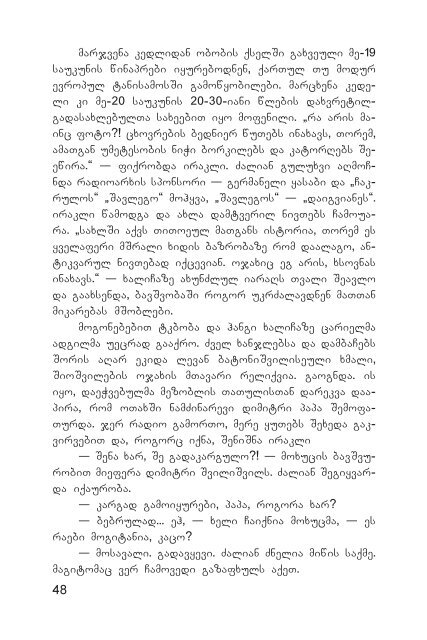 მარჯვენა კედლიდან ობობის ქსელში გახვეული მე-19
საუკუნის წინაპრები იყურებოდნენ, ქართულ თუ მოდურ
ევროპულ ტანისამოსში გამოწყობილები. მარცხენა კედე-
ლი კი მე-20 საუკუნის 20-30-იანი წლების დახვრეტილ-
გადასახლებულთა სახეებით იყო მოფენილი. „რა არის მა-
ინც ფოტო?! ცხოვრების ბედნიერ წუთებს ინახავს, თორემ,
ამათგან უმეტესობის ნიჭი ბორკილებს და კატორღებს შე-
ეწირა.“ — ფიქრობდა ირაკლი. ძალიან გულუხვი აღმოჩ-
ნდა რადიოარხის სპონსორი — გერმანელი ყასაბი და „ჩაკ-
რულოს“ „შავლეგო“ მოჰყვა, „შავლეგოს“ — „დაიგვიანეს“.
ირაკლი წამოდგა და ახლა დამტვერილ ნივთებს ჩამოუა-
რა. „სახლში აქვს თითოეულ მათგანს ისტორია, თორემ ეს
ყველაფერი მშრალი ხიდის ბაზრობაზე რომ დაალაგო, ან-
ტიკვარულ ნივთებად იქცევიან. ოჯახიც ეგ არის, ხსოვნას
ინახავს.“ — ხალიჩაზე ახუნძლულ იარაღს თვალი შეავლო
და გაახსენდა, ბავშვობაში როგორ უკრძალავდნენ მათთან
მიკარებას მშობლები.
მოგონებებით ტკბობა და ჰანგი ხალიჩაზე ცარიელმა
ადგილმა უეცრად გააქრო. ძველ ხანჯლებსა და დამბაჩებს
შორის აღარ ეკიდა ლევან ბატონიშვილისეული ხმალი,
შიოშვილების ოჯახის მთავარი რელიქვია. გაოგნდა. ის
იყო, დაეჭვებულმა მეზობლის თათულისთან დარეკვა დაა-
პირა, რომ ოთახში ნამძინარევი დიმიტრი პაპა შემოფა-
თურდა. ჯერ რადიო გამორთო, მერე ყუთებს შეხედა გაკ-
ვირვებით და, როგორც იქნა, შენიშნა ირაკლი
— შენა ხარ, შე გადაკარგულო?! — მოხუცის ბავშვუ-
რობით მიეფერა დიმიტრი შვილიშვილს. ძალიან შეგიყვარ-
და იქაურობა.
— კარგად გამოიყურები, პაპა, როგორა ხარ?
— ბებრულად... ეჰ, — ხელი ჩაიქნია მოხუცმა, — ეს
რაები მოგიტანია, კაცო?
— მოსავალი. გადავყევი. ძალიან ძნელია მიწის საქმე.
მაგიტომაც ვერ ჩამოვედი გაზაფხულს აქეთ.
48